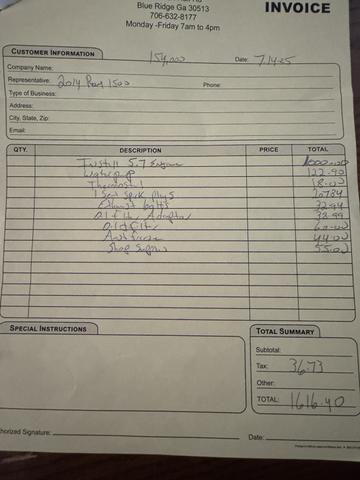 Blue Ridge Ga 30513
INVOICE
706-632-8177
Monday -Friday 7am to 4pm
CUSTOMER INFORMATION
154,000
Date: 7/14/25
Company Name:
Representative: 2014 Ram 1500
Phone:
Type of Business:
Address:
City, State, Zip:
Email:
QTY. DESCRIPTION PRICE TOTAL
Install 5.7 Engine 1000.00
Waterpump 122.90
Thermostat 18.00
1 Set Spark Plugs 207.84
Exhaust bolts 32.94
Oil filter Adapter 38.99
Oil & filter 60.00
Antifreeze 44.00
Shop Supplies 55.00
SPECIAL INSTRUCTIONS
TOTAL SUMMARY
Subtotal:
Tax: 36.73
Other:
TOTAL: 1616.40
Authorized Signature:
Date: